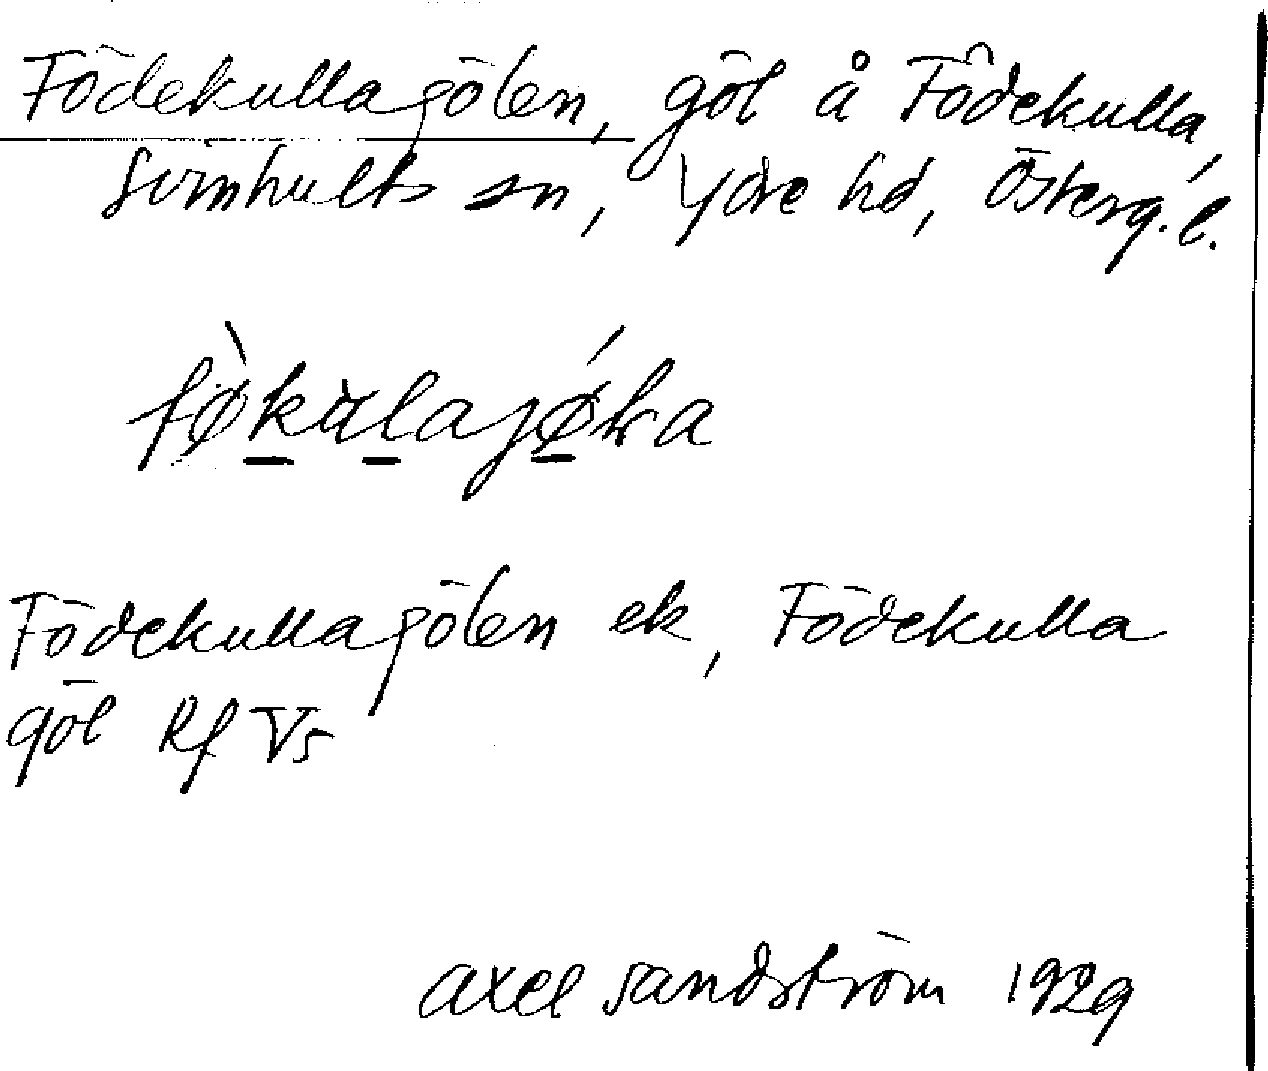 Födekullagölen, göl å Födekulla,
Svinhults sn, Ydre hd, Österg. l.
Födekullagölen ek, Födekulla
göl Rf Vs
Axel Sandström 1929